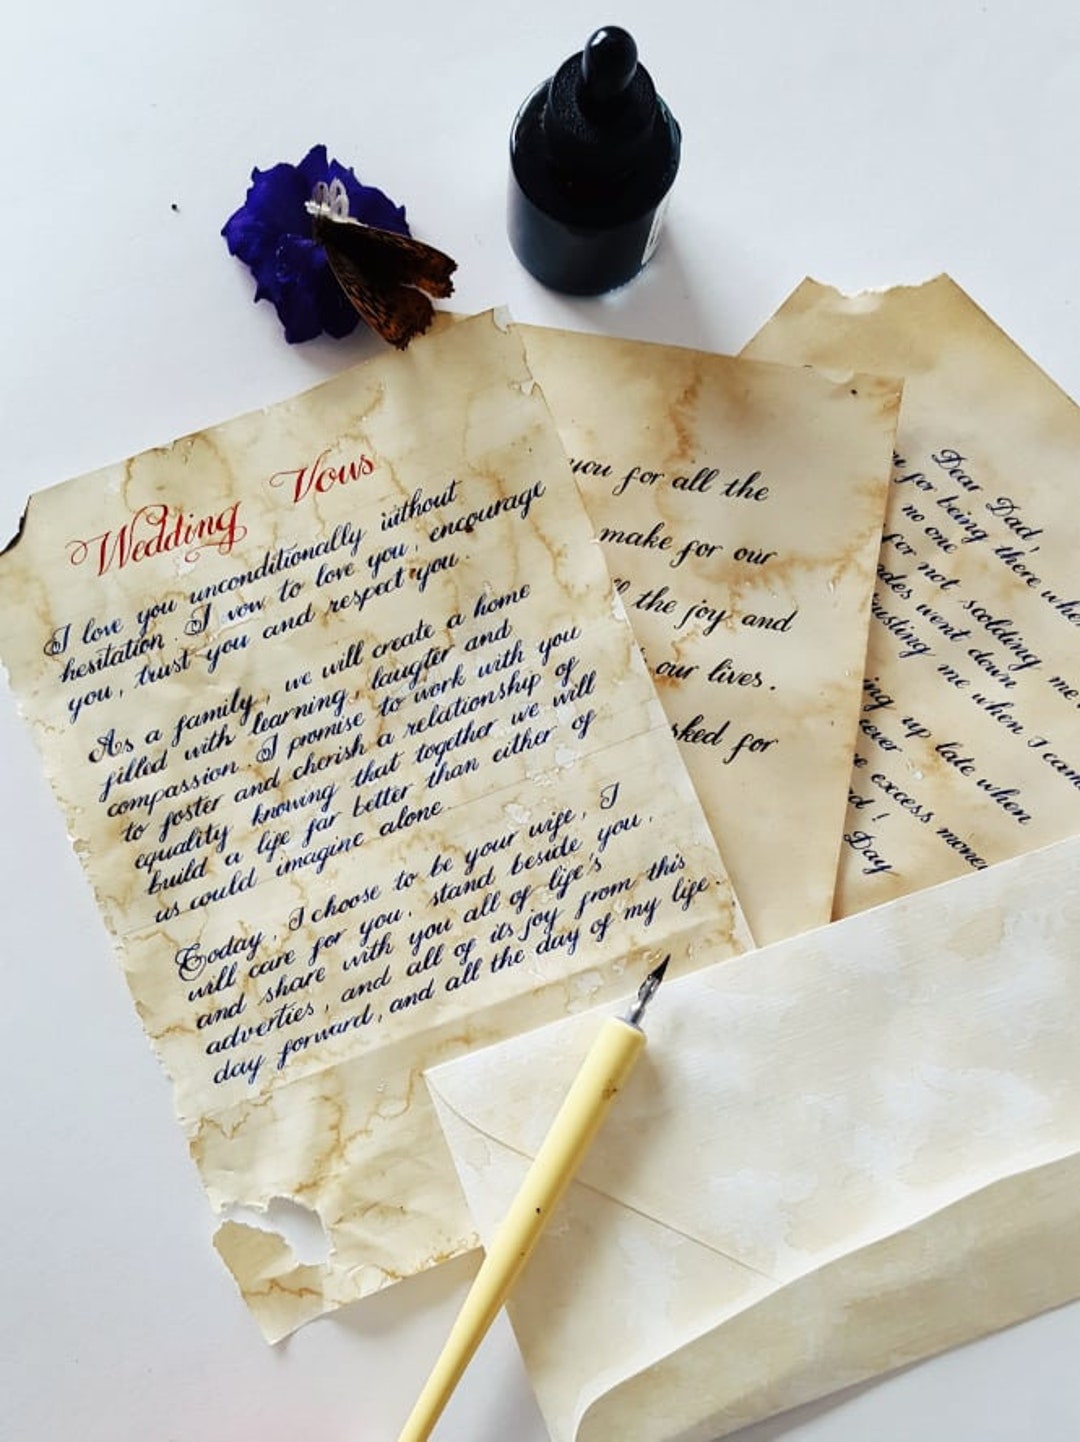 Wedding Vous
I love you unconditionally without
hesitation. I vow to love you, encourage
you, trust you and respect you.
As a family, we will create a home
filled with learning, laugter and
compassion. I promise to work with you
to foster and cherish a relationship of
equality knowing that together we will
build a life far better than either of
us could imagine alone.
Today, I choose to be your wife, I
will care for you, stand beside you,
and share with you all of life's
adverties, and all of its joy from this
day forward, and all the day of my life.
you for all the
make for our
the joy and
our lives.
sked for
Dear Dad,
for being there whe
no one
for not scolding me
des went down
usting me when I cam
ing up late when
ever
excess mone
d!
Day